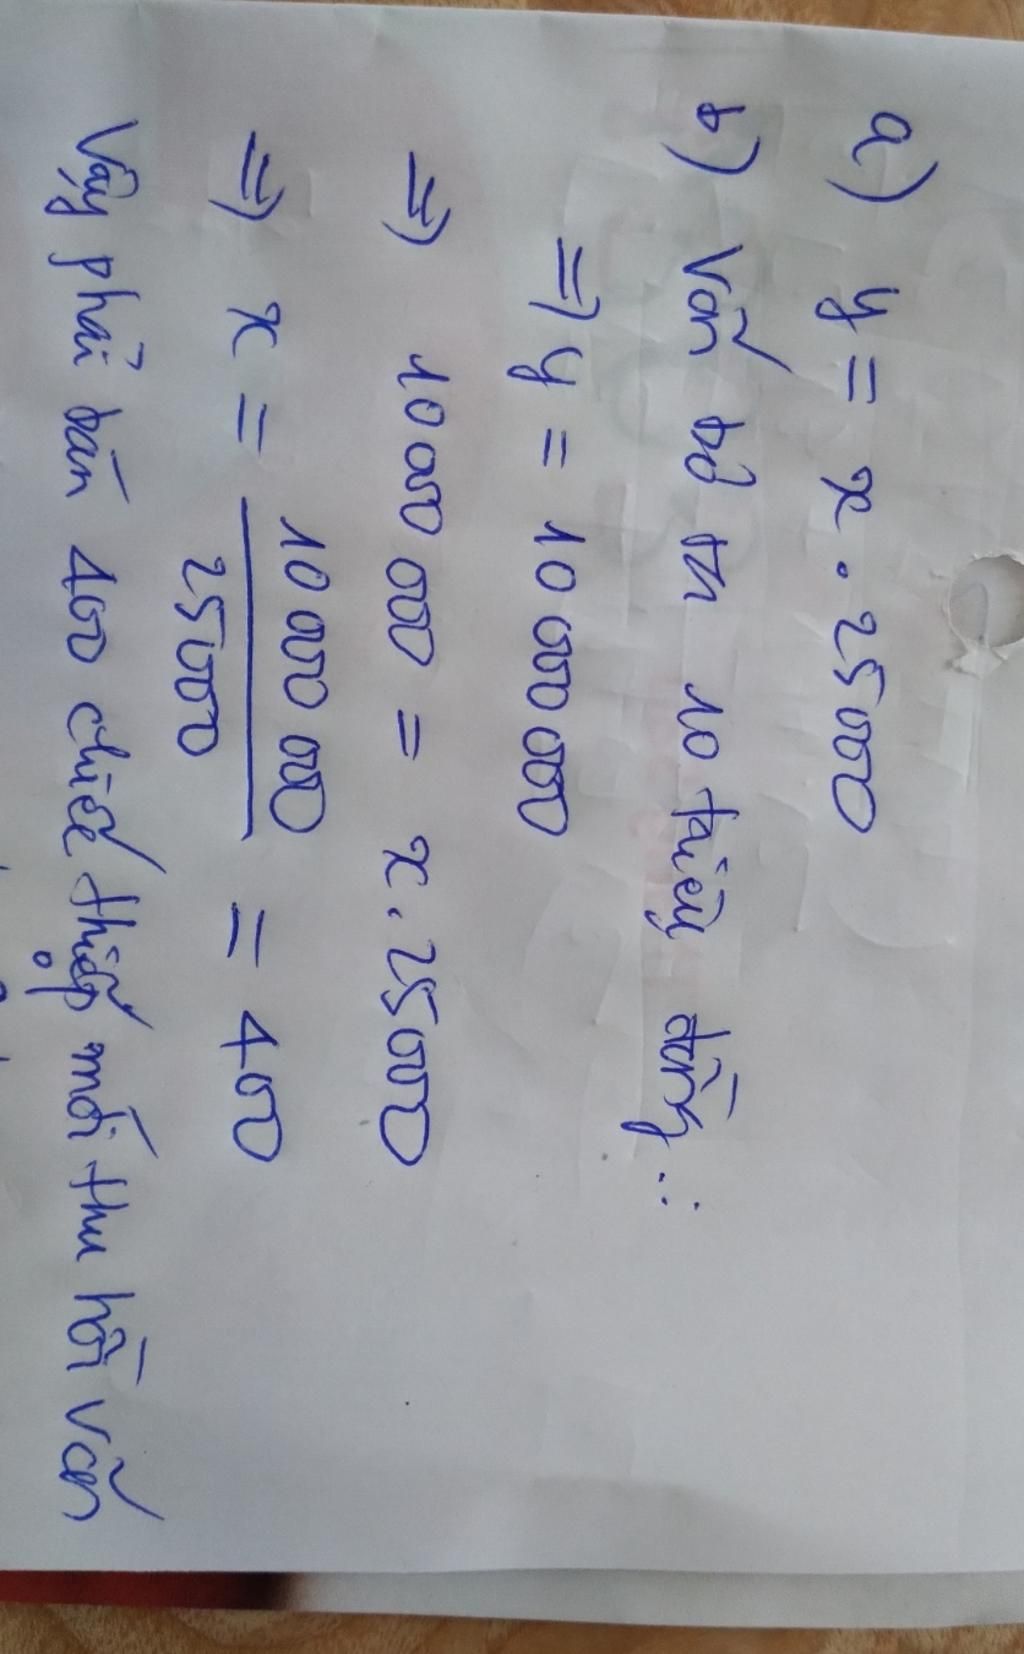 a) y = x . 25000
b) Vốn bỏ ra 10 triệu đồng :
=> y = 10 000 000
=> 10 000 000 = x . 25000
=> x = 10 000 000 / 25000 = 400
Vậy phải bán 400 chiếc thiệp mới thu hồi vốn